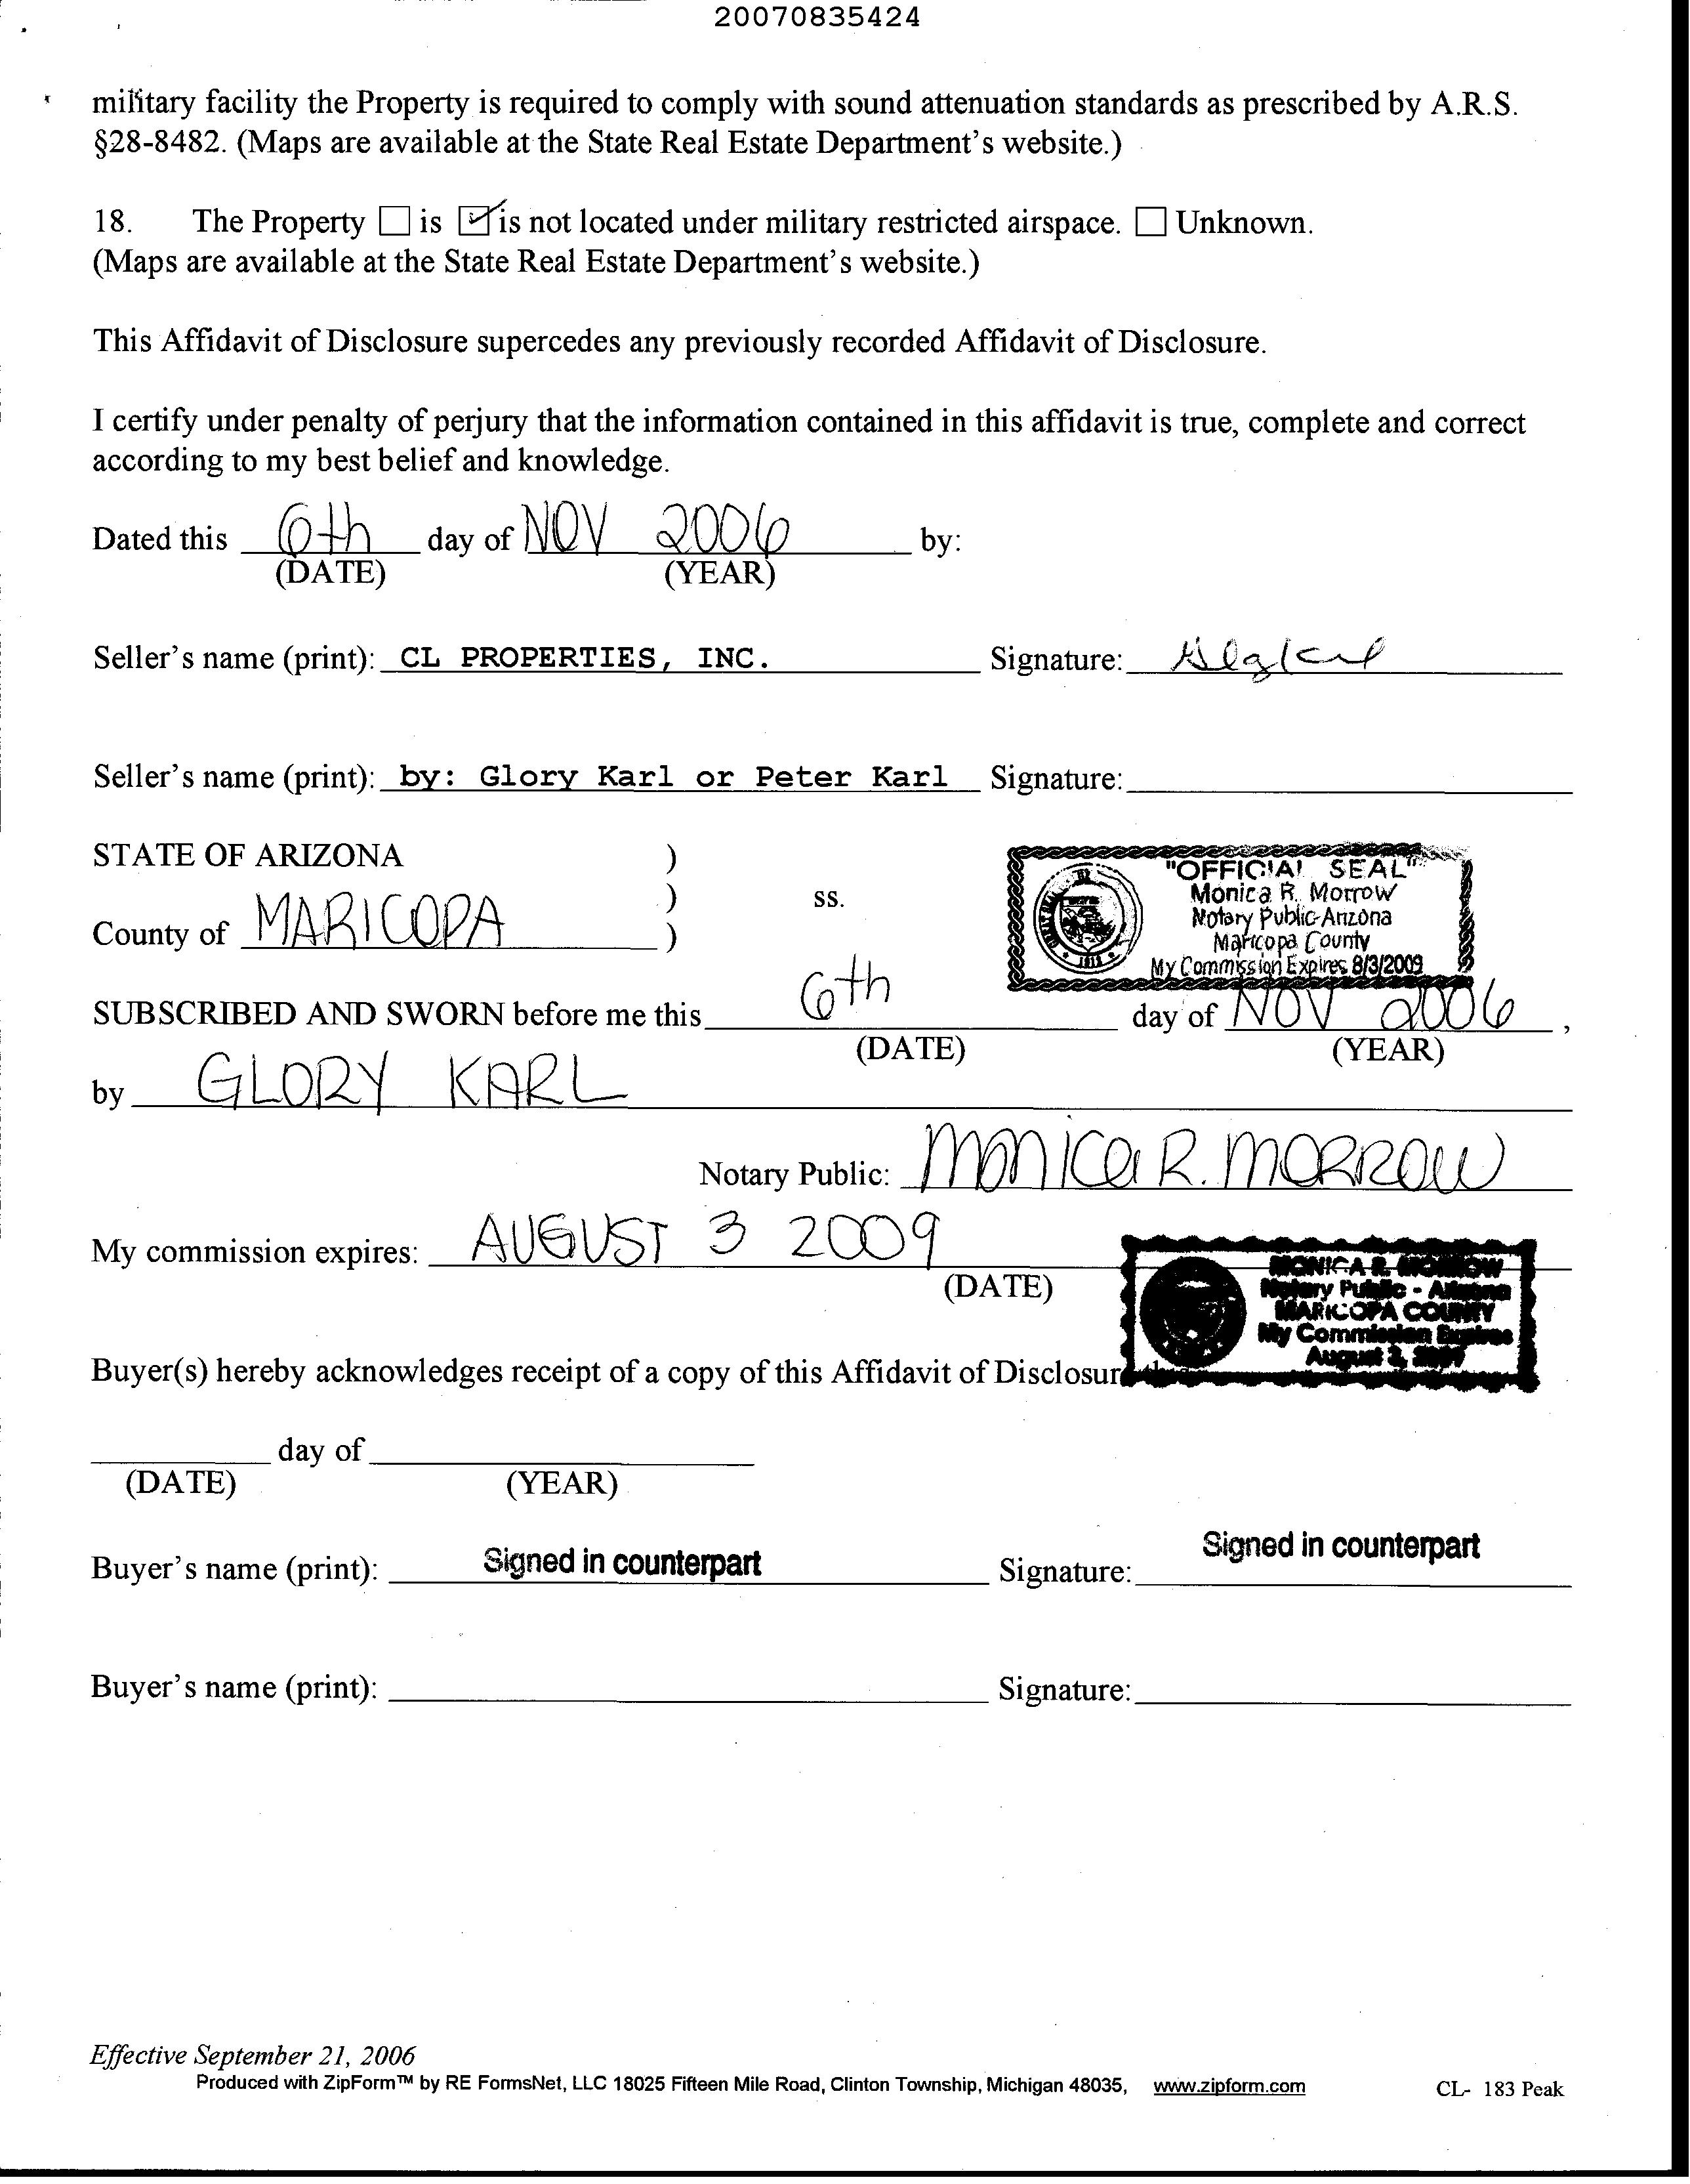 20070835424
military facility the Property is required to comply with sound attenuation standards as prescribed by A.R.S.
§28-8482. (Maps are available at the State Real Estate Department's website.)
18. The Property ☐ is ☑ is not located under military restricted airspace. ☐ Unknown.
(Maps are available at the State Real Estate Department's website.)
This Affidavit of Disclosure supercedes any previously recorded Affidavit of Disclosure.
I certify under penalty of perjury that the information contained in this affidavit is true, complete and correct
according to my best belief and knowledge.
Dated this 6th day of NOV 2006 by:
(DATE) (YEAR)
Seller's name (print): CL PROPERTIES, INC. Signature:
Seller's name (print): by: Glory Karl or Peter Karl Signature:
STATE OF ARIZONA )
) ss.
County of MARICOPA )
"OFFICIAL SEAL"
Monica R. Morrow
Notary Public-Arizona
Maricopa County
My Commission Expires 8/3/2009
SUBSCRIBED AND SWORN before me this 6th day of NOV 2006,
(DATE) (YEAR)
by GLORY KARL
Notary Public: MONICA R. MORROW
My commission expires: AUGUST 3 2009
(DATE)
MONICA R. MORROW
Notary Public - Arizona
MARICOPA COUNTY
My Commission Expires
August 3, 2009
Buyer(s) hereby acknowledges receipt of a copy of this Affidavit of Disclosure
day of
(DATE) (YEAR)
Buyer's name (print): Signed in counterpart Signature: Signed in counterpart
Buyer's name (print): Signature:
Effective September 21, 2006
Produced with ZipForm™ by RE FormsNet, LLC 18025 Fifteen Mile Road, Clinton Township, Michigan 48035, www.zipform.com CL- 183 Peak